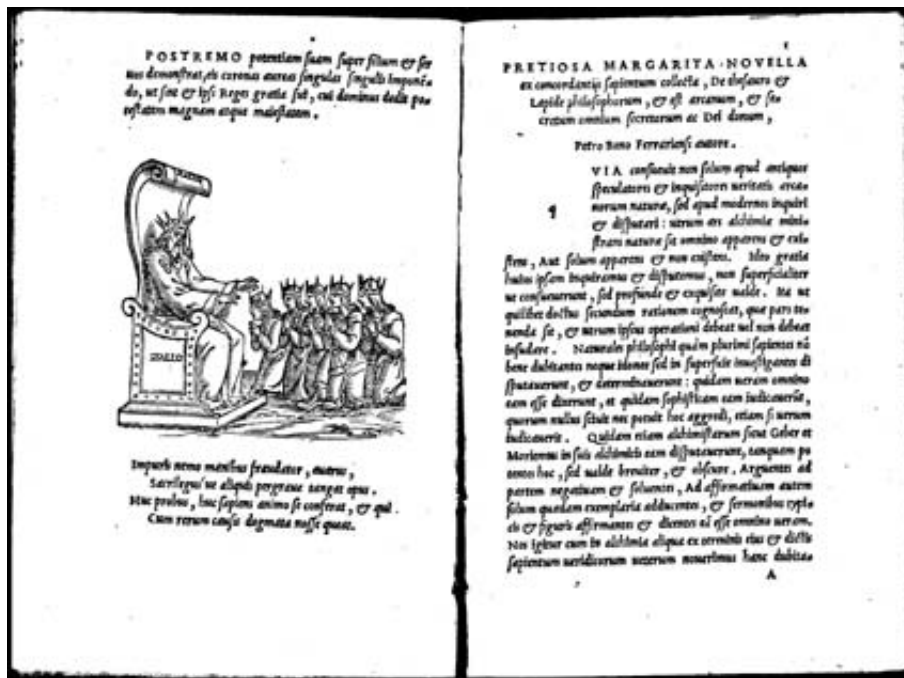 POSTREMO potentiam suam super filium & ser
uos demonstrat, eis coronas aureas singulas singulis imponē
do, ut sint & ipsi Reges gratia sui, cui dominus dedit po=
testatem magnam atque maiestatem.
Impuris nemo manibus fraudator, auarus,
Sacrilegus'ue aliquis pergraue tangat opus.
Huc probus, huc sapiens animo se conferat, & qui
Cum rerum causis dogmata nosse queat.
1
PRETIOSA MARGARITA NOVELLA
ex concordantijs sapientum collecta, De thesauro &
Lapide philosophorum, & est arcanum, & se=
cretum omnium secretorum ac Dei donum,
Petro Bono Ferrariensi autore.
VIA consueuit non solum apud antiquos
speculatores & inquisitores ueritatis arca=
norum naturæ, sed apud modernos inquiri
¶
& disputari: utrum ars alchimiæ mini=
strans naturæ sit omnino apparens & exi=
stens, Aut solum apparens & non existens. Ideo gratia
huius ipsam inquiramus & disputemus, non superficialiter
ut consueuerunt, sed profunde & exquisite ualde. Ita ut
quilibet doctus secundum rationem cognoscat, quæ pars te=
nenda sit, & utrum ipsius operationi debeat uel non debeat
insudare. Naturales philosophi quàm plurimi sapientes nō
bene dubitantes neque idonee sed in superficie inuestigantes di
sputauerunt, & determinauerunt: quidam ueram omnino
eam esse dixerunt, et quidam sophisticam eam iudicauerūt,
quorum nullus sciuit nec potuit hoc aggredi, etiam si uerum
iudicauerit. Quidam etiam alchimistarum sicut Geber et
Morienus in suis alchimiis eam disputauerunt, tanquam po
tentes hoc, sed ualde breuiter, & obscure. Arguentes ad
partem negatiuam & soluentes, Ad affirmatiuam autem
solum quædam exemplaria adducentes, & sermonibus typi=
cis & figuris affirmantes & dicentes eā esse omnino ueram.
Nos igitur cum in alchimia aliqua ex terminis eius & dictis
sapientum ueridicorum ueterum nouerimus hanc dubita=
A